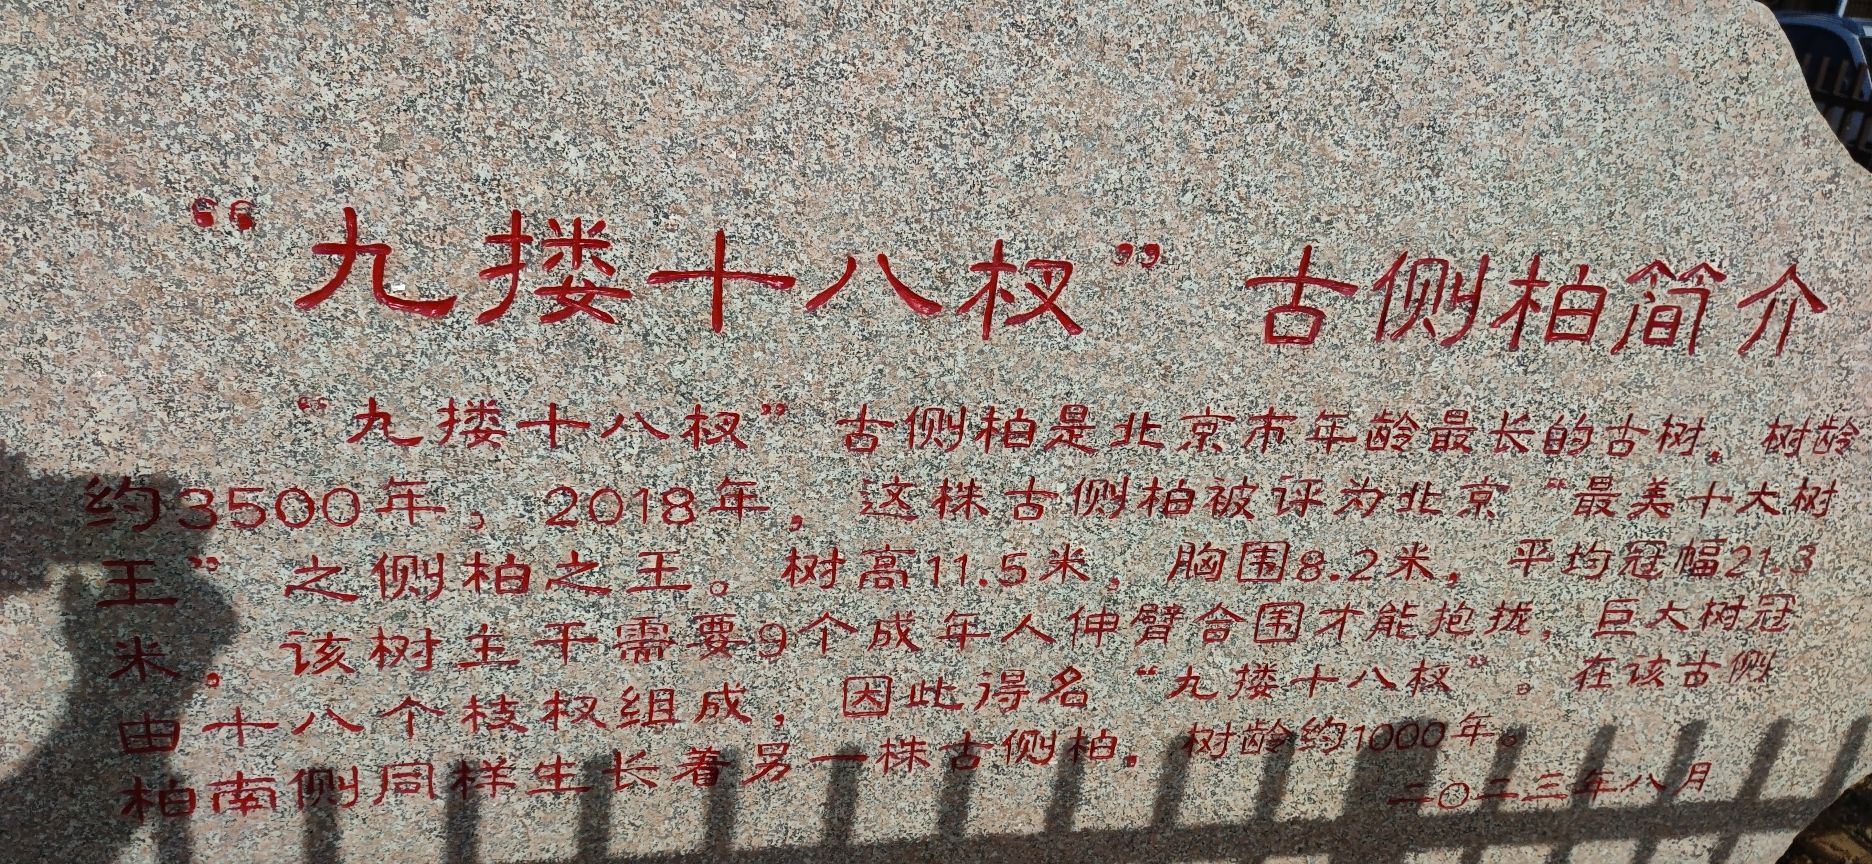 “九搂十八杈”古侧柏简介
“九搂十八杈”古侧柏是北京市年龄最长的古树，树龄
约3500年，2018年，这株古侧柏被评为北京“最美十大树
王”之侧柏之王。树高11.5米，胸围8.2米，平均冠幅21.3
米。该树主干需要9个成年人伸臂合围才能抱拢，巨大树冠
由十八个枝杈组成，因此得名“九搂十八杈”。在该古侧
柏南侧同样生长着另一株古侧柏，树龄约1000年。
二〇二三年八月